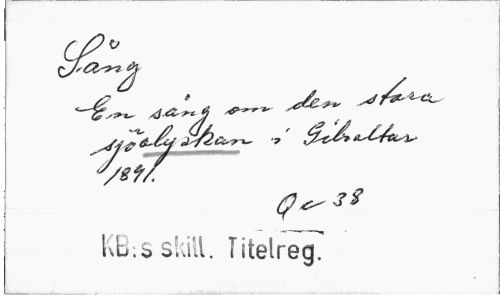 Sång
En sång om den stora
sjöolyckan i Gibraltar
1891.
Qc 38
KB:s skill. Titelreg.